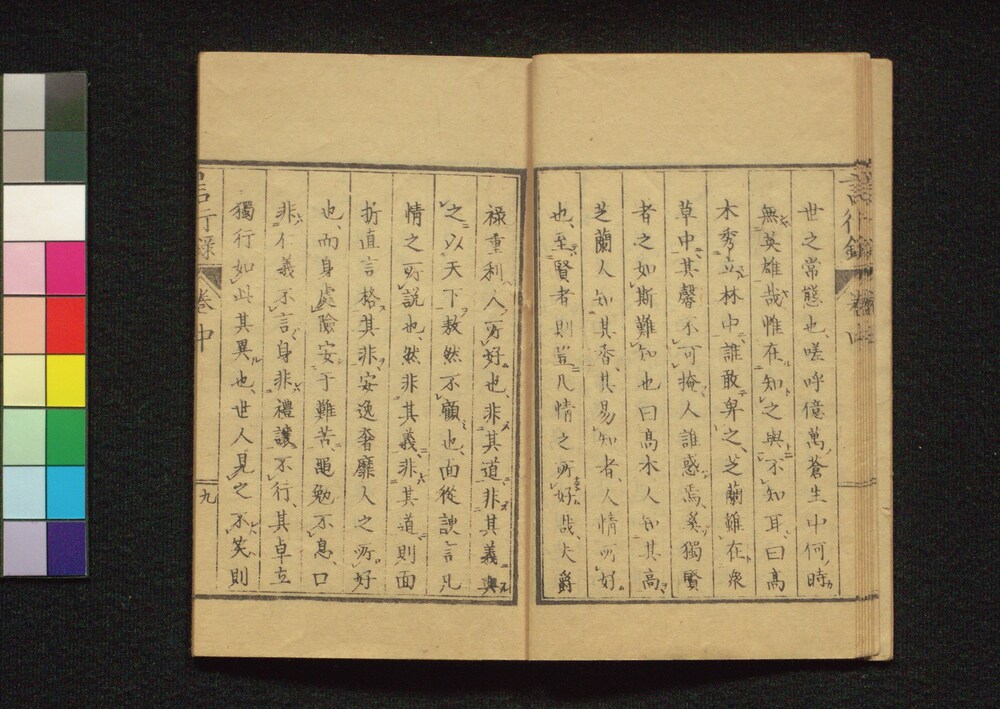 世之常態也、嗟呼億萬蒼生中何時
無英雄哉惟在知之與不知耳、曰高
木秀立林中、誰敢卑之、芝蘭雖在衆
草中、其馨不可掩、人誰惑焉、奚獨賢
者之如斯難知也曰高木人知其高
芝蘭人知其香、其易知者、人情所好
也、至賢者則豈凡情之所好哉、夫爵
祿重利人所好也、非其道非其義與
之以天下敖然不顧也、面從諛言凡
情之所說也、然非其義、非其道則面
折直言格其非、安逸奢靡人之所好
也、而身處險安于難苦、黽勉不息、口
非仁義不言、身非禮讓不行、其卓立
獨行如此其異也、世人見之不笑、則
言行錄
卷中
九